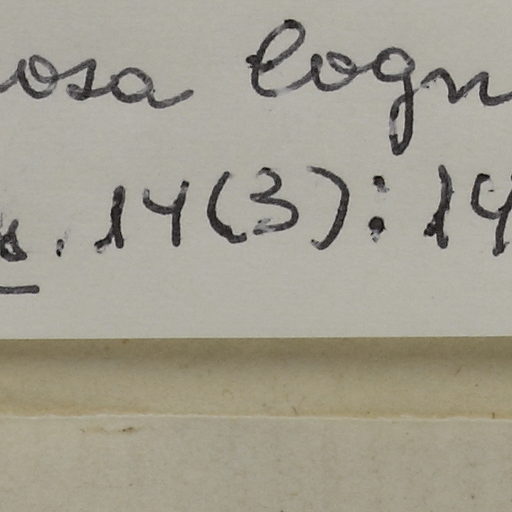 osa Cogn
. 14(3): 14